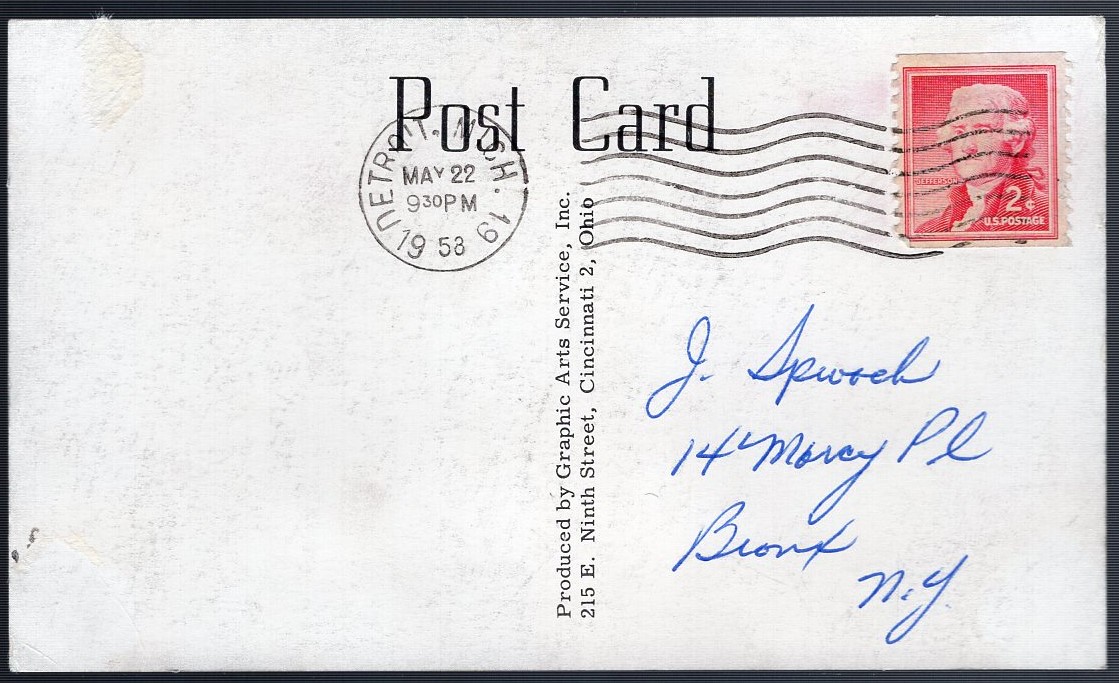 Post Card
DETROIT, MICH. 19
MAY 22
9 30 PM
1958
JEFFERSON
2¢
U.S. POSTAGE
Produced by Graphic Arts Service, Inc.
215 E. Ninth Street, Cincinnati 2, Ohio
J. Spwoch
14 Marcy Pl
Bronx
N.Y.